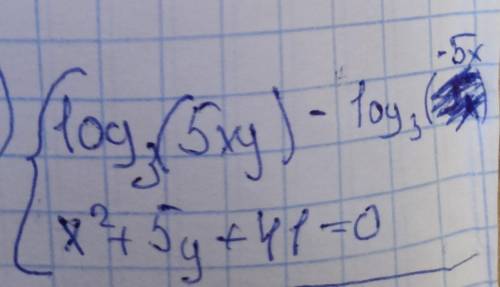 -5x
log₃(5xy) - log₃(
x² + 5y + 41 = 0